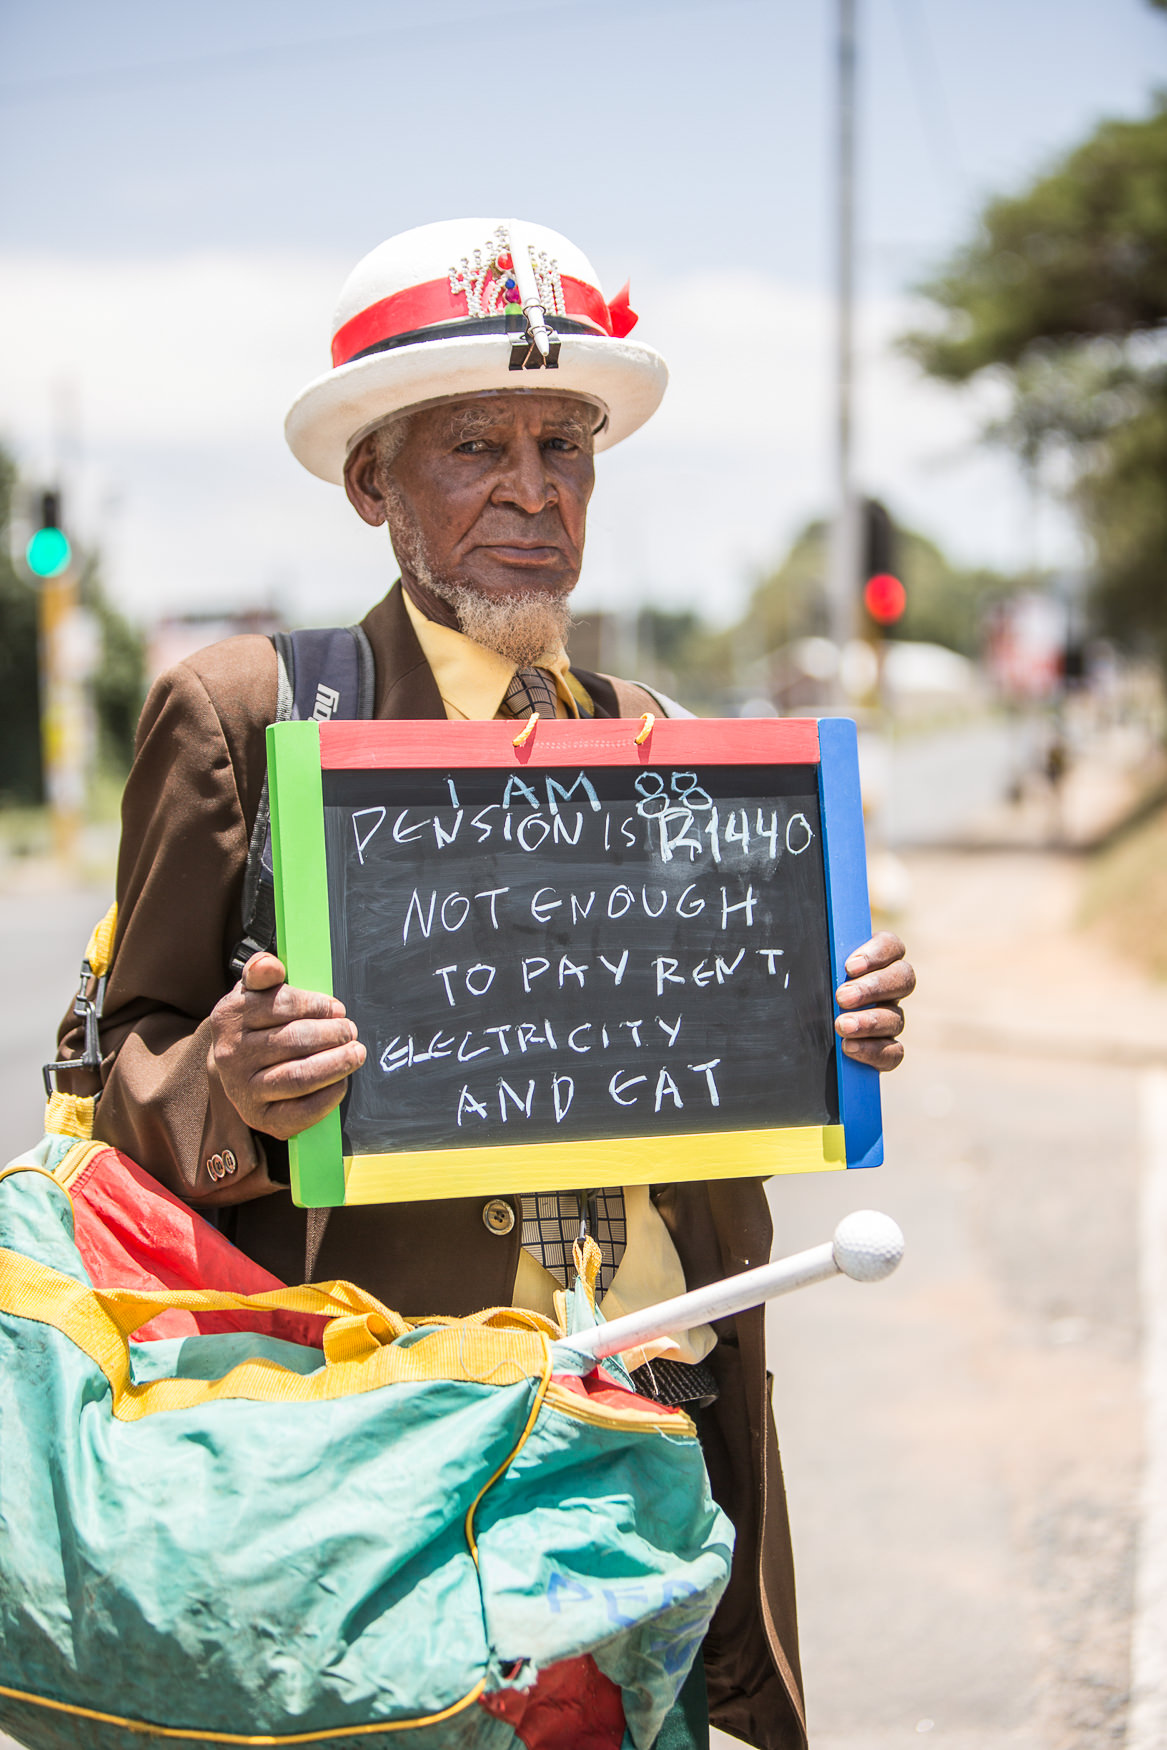 I AM 88
PENSION IS R1440
NOT ENOUGH
TO PAY RENT,
ELECTRICITY
AND EAT